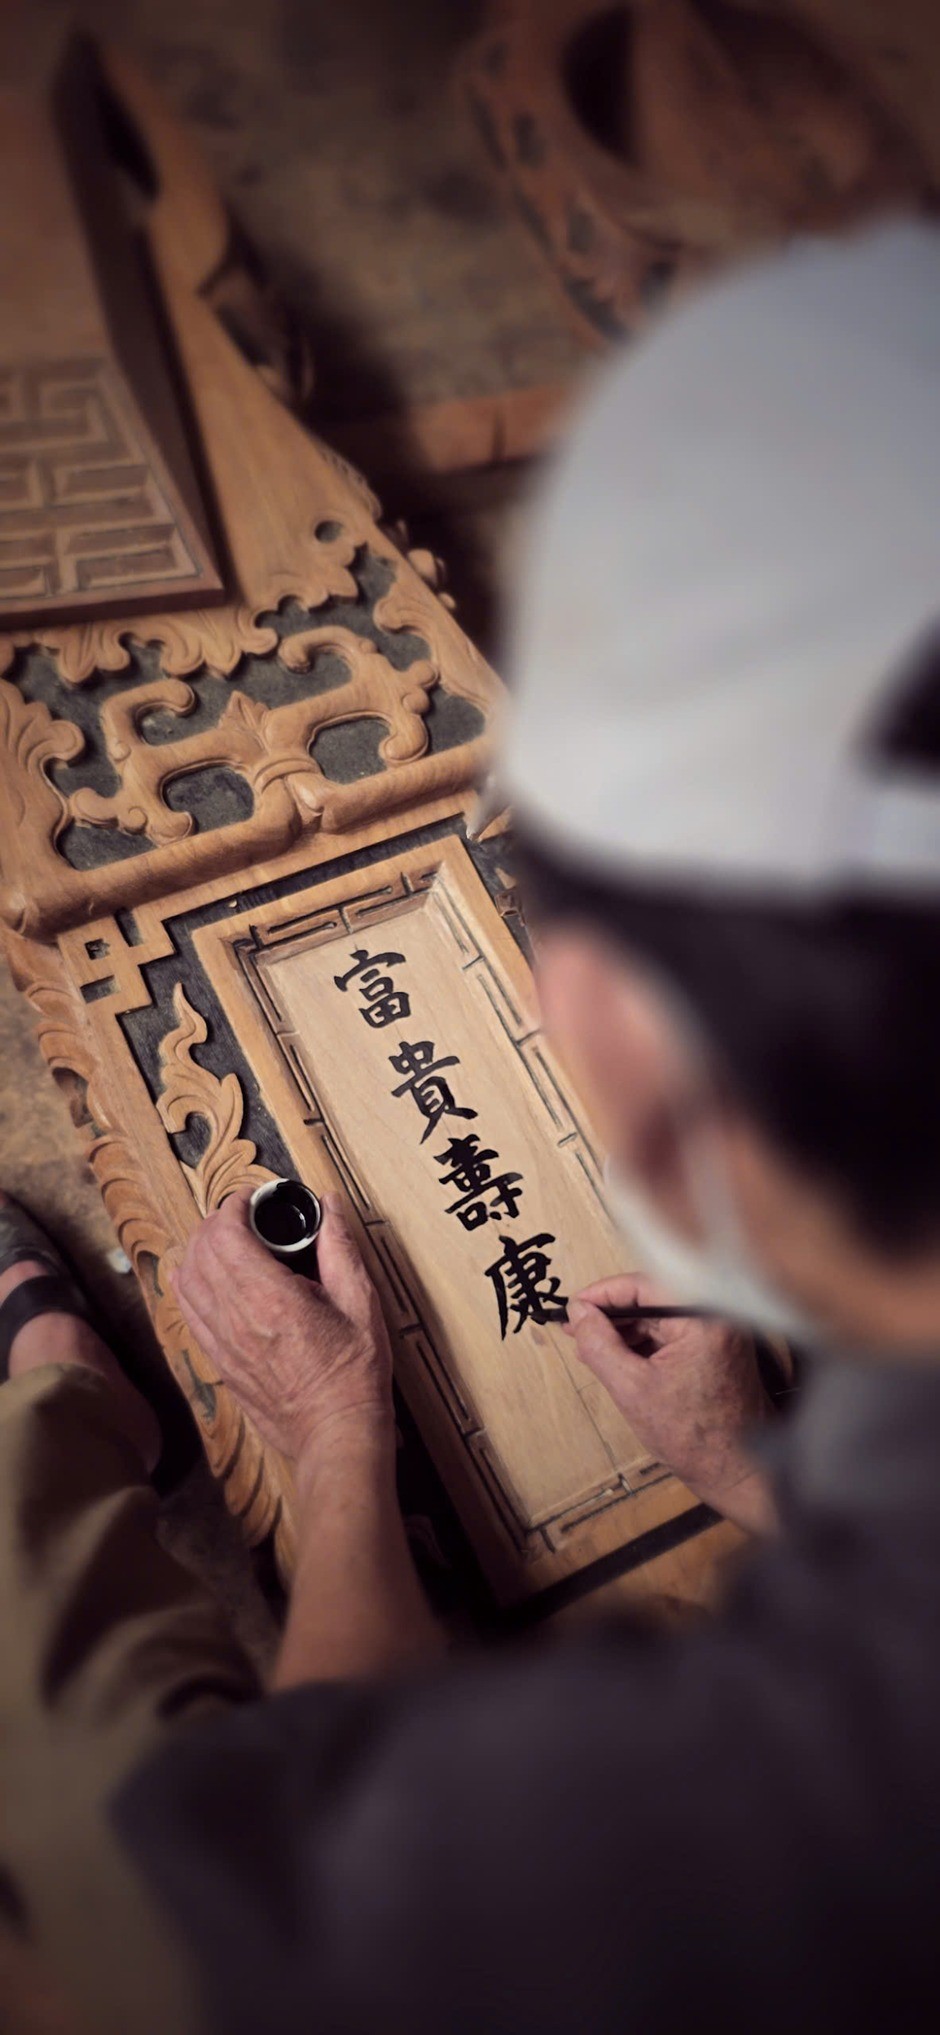 富貴壽康